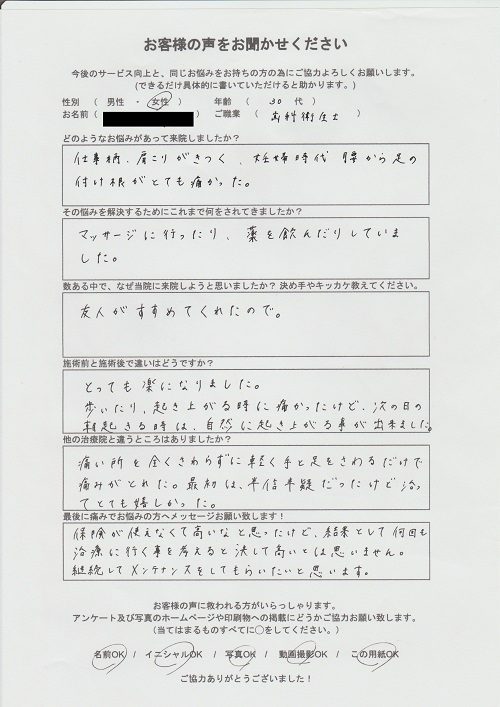 お客様の声をお聞かせください
今後のサービス向上と、同じお悩みをお持ちの方の為にご協力よろしくお願いします。
(できるだけ具体的に書いていただけると助かります。)
性別 ( 男性 ・ 女性 ) 年齢 ( 30 代 )
お名前 ( ) ご職業 ( 歯科衛生士 )
どのようなお悩みがあって来院しましたか?
仕事柄、肩こりがきつく、妊婦時代 腰から足の
付け根がとても痛かった。
その悩みを解決するためにこれまで何をされてきましたか?
マッサージに行ったり、薬を飲んだりしていま
した。
数ある中で、なぜ当院に来院しようと思いましたか? 決め手やキッカケ教えてください。
友人がすすめてくれたので。
施術前と施術後で違いはどうですか?
とっても楽になりました。
歩いたり、起き上がる時に痛かったけど、次の日の
朝起きる時は、自然に起き上がる事が出来ました。
他の治療院と違うところはありましたか?
痛い所を全くさわらずに軽く手と足をさわるだけで
痛みがとれた。最初は、半信半疑だったけど治っ
てとても嬉しかった。
最後に痛みでお悩みの方へメッセージお願い致します!
保険が使えなくて高いなと思ったけど、結果として何回も
治療に行く事を考えると決して高いとは思いません。
継続してメンテナンスをしてもらいたいと思います。
お客様の声に救われる方がいらっしゃります。
アンケート及び写真のホームページや印刷物への掲載にどうかご協力お願い致します。
(当てはまるものすべてに○をしてください。)
名前OK / イニシャルOK / 写真OK / 動画撮影OK / この用紙OK
ご協力ありがとうございました!